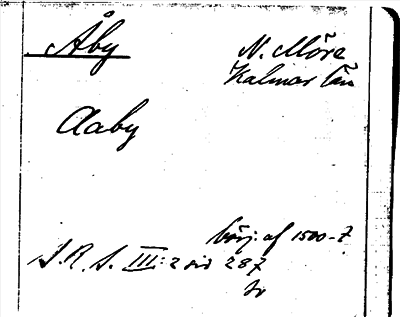 Åby
N. Möre
Kalmar län
Aaby
börj. af 1500-t.
S.R.S. III:2 sid 287